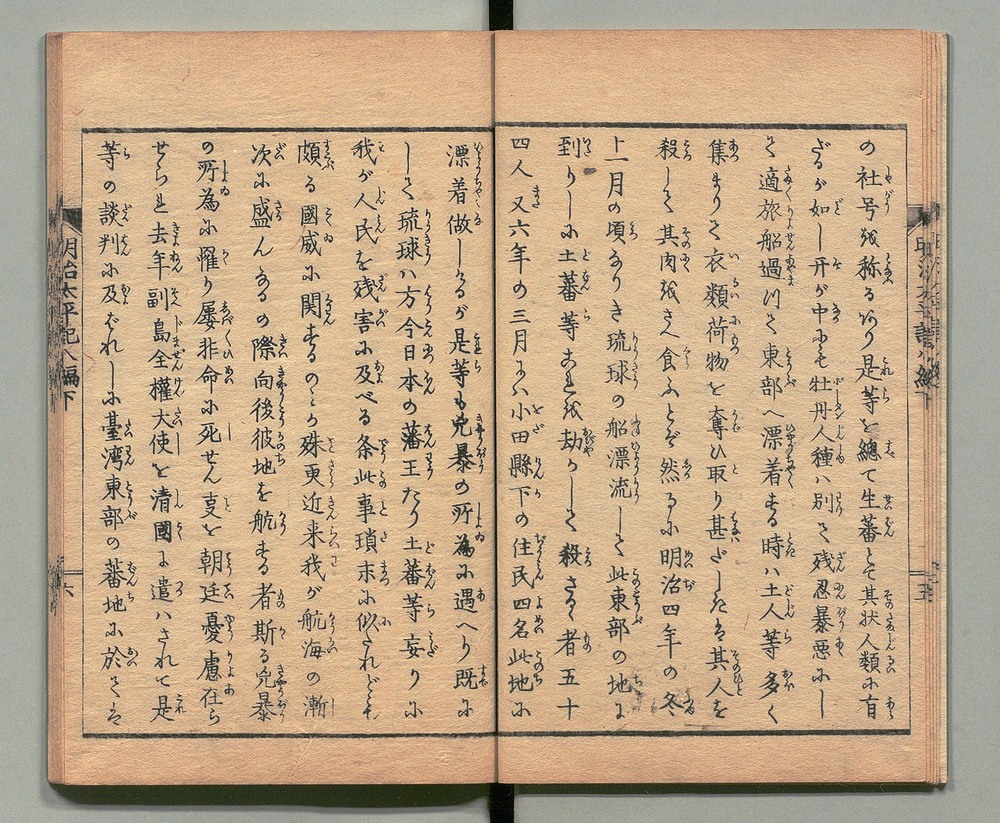 の社号を称るあり是等を總て生蕃とて其状人類に肖
ざるが如し丌が中にも牡丹人種ハ別て残忍暴悪にし
て適旅船過つて東部へ漂着する時ハ土人等多く
集まりて衣類荷物を奪ひ取り甚だしきは其人を
殺して其肉をさへ食ふとぞ然るに明治四年の冬
十一月の頃なりき琉球の船漂流して此東部の地に
到りしに土蕃等これを劫かして殺さるゝ者五十
四人又六年の三月にハ小田縣下の住民四名此地に
漂着做しゝるが是等も兇暴の所為に遇へり既に
して琉球ハ方今日本の藩王たり土蕃等妄りに
我が人民を残害に及べる条此事瑣末に似たれども
頗る國威に関するのミか殊更近来我が航海の漸
次に盛んなるの際向後彼地を航する者斯る兇暴
の所為に罹り屡非命に死せん支を朝廷憂慮在ら
せられ去年副島全權大使を清國に遣ハされて是
等の談判に及ばれしに臺湾東部の蕃地に於ては
明治太平記八編下
六